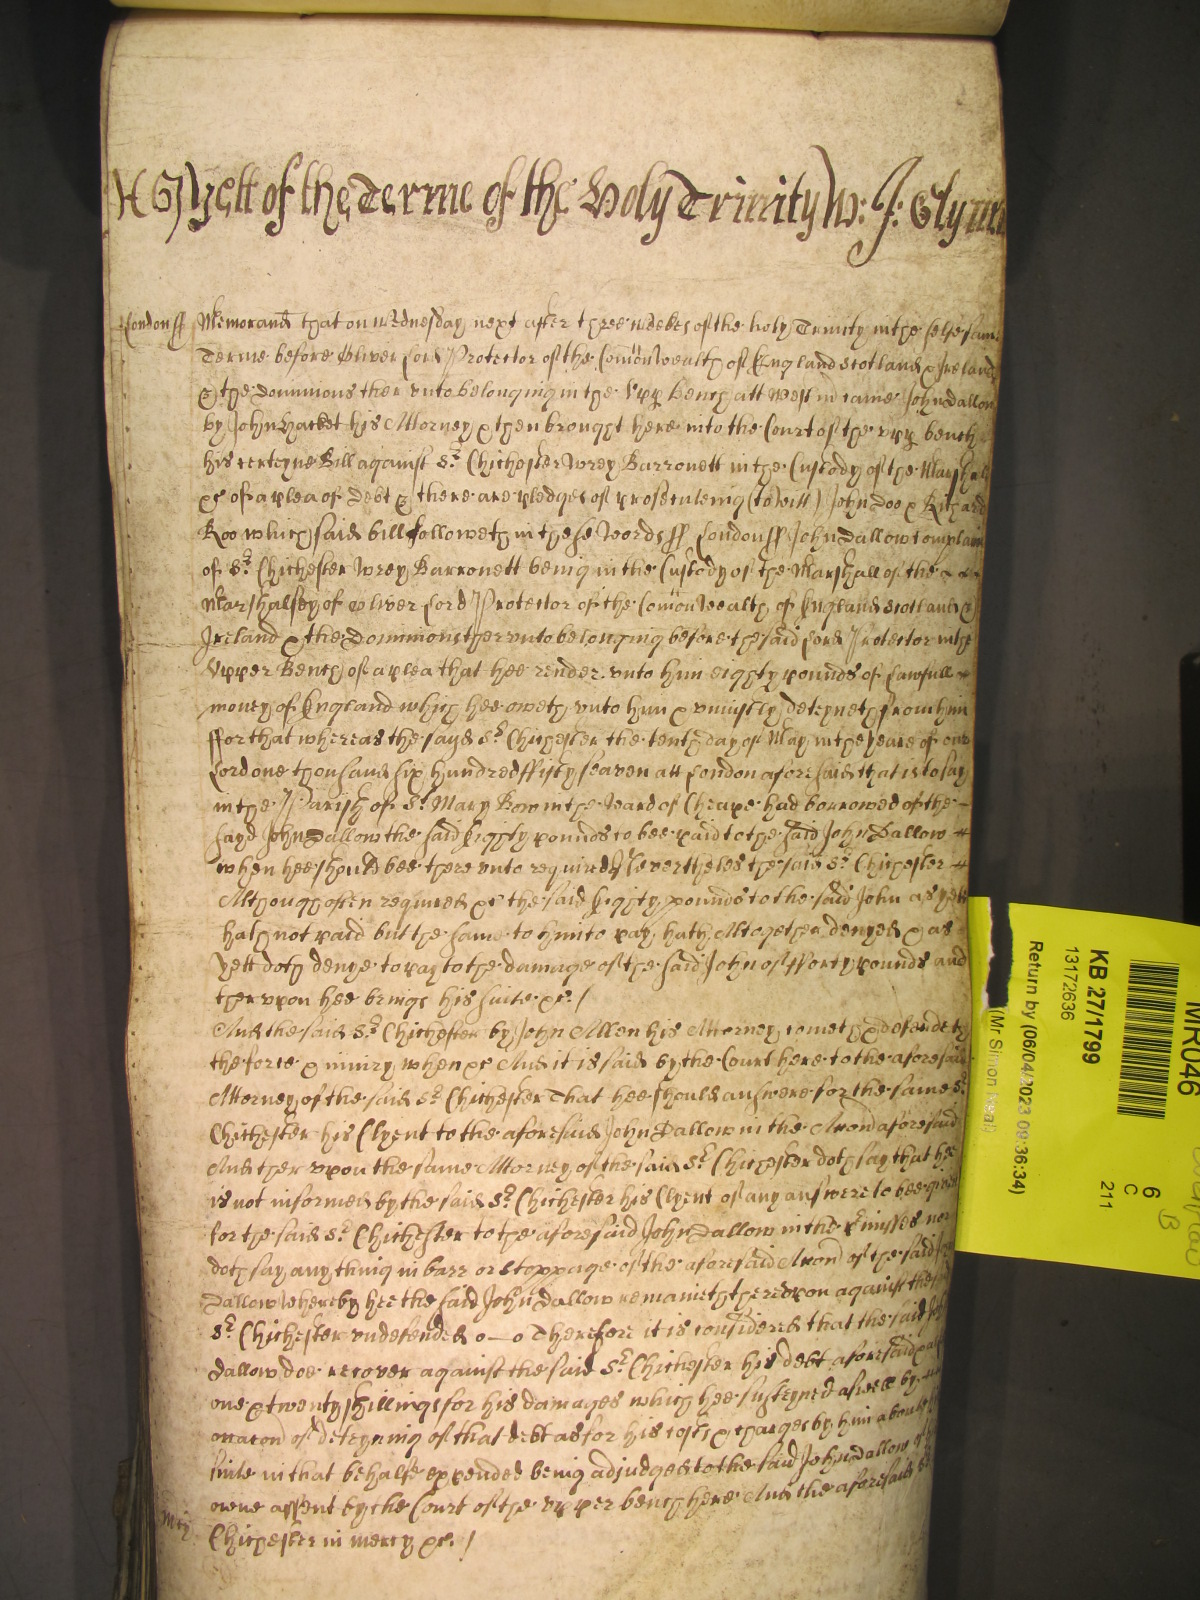 Yett of the Terme of the Holy Trinity W: J: Glynn
London ss Memorand that on wednesday next after three weekes of the holy Trinity in the selfe same
Terme before Oliver Lord Protector of the Comon Wealth of England Scotland & Ireland
& the dominions therunto belonging in the Upp bench att Westm came John Dallow
by John Hacket his Attorney & then brought here into the Court of the upp bench
his certeyne Bill against Sr Chichester Wrey Barronett in the Custody of the Marshall
&c of a plea of Debt & there are pledges of prosecuteing (to witt) John Doe & Richard
Roo which said bill followeth in these words ss London ss John Dallow complaines
of Sr Chichester Wrey Barronett being in the Custody of the Marshall of the
Marshalsey of Oliver Lord Protector of the Comon Wealth of England Scotland &
Ireland & the Dominions therunto belonging before the said Lord Protector in the
Upper Bench of a plea that hee render unto him eighty pounds of Lawfull
money of England which hee oweth unto him & uniustly deteyneth from him
ffor that whereas the sayd Sr Chichester the tenth day of May in the yeare of our
Lord one thousand six hundred ffifty seaven att London aforesaid that is to say
in the Parish of St Mary Bow in the Ward of Cheape had borrowed of the
sayd John Dallow the said Eighty pounds to bee paid to the said John Dallow
when hee should bee there unto required Neverthelès the said Sr Chichester
Although often required &c the said Eighty pounds to the said John as yett
hath not paid but the same to him to pay hath Altogether denyed & as
yett doth denye to pay to the damage of the said John of fforty pounds and
therupon hee brings his suite &c. /
And the said Sr Chichester by John Allen his Attorney cometh & defendeth
the force & iniury when &c And it is said by the Court here to the aforesaid
Attorney of the said Sr Chichester That hee should answere for the same Sr
Chichester his Clyent to the aforesaid John Dallow in the Accon aforesaid
And therupon the same Attorney of the said Sr Chichester doth say that hee
is not informed by the said Sr Chichester his Clyent of any answere to bee given
for the said Sr Chichester to the aforesaid John Dallow in the Pmisses nor
doth say any thing in barr or stoppage of the aforesaid Accon of the said John
Dallow Whereby hee the said John Dallow remaineth thereupon against the
Sr Chichester undefended o—o Therefore it is considered that the said
Dallow doe recover against the said Sr Chichester his debt aforesaid
one & twenty shillings for his damages which hee susteyned aswell by
occacon of deteyning of that debt as for his costs & charges by him about
suite in that behalfe expended being adjudged to the said John Dallow
owne assent by the Court of the upper bench here And the aforesaid Sr
Mcy Chichester in mercy &c. /
MR046
KB 27/1799
13172636
Return by (06/04/2023 09:36:34)
(Mr Simon Neal)
6
C
211
B